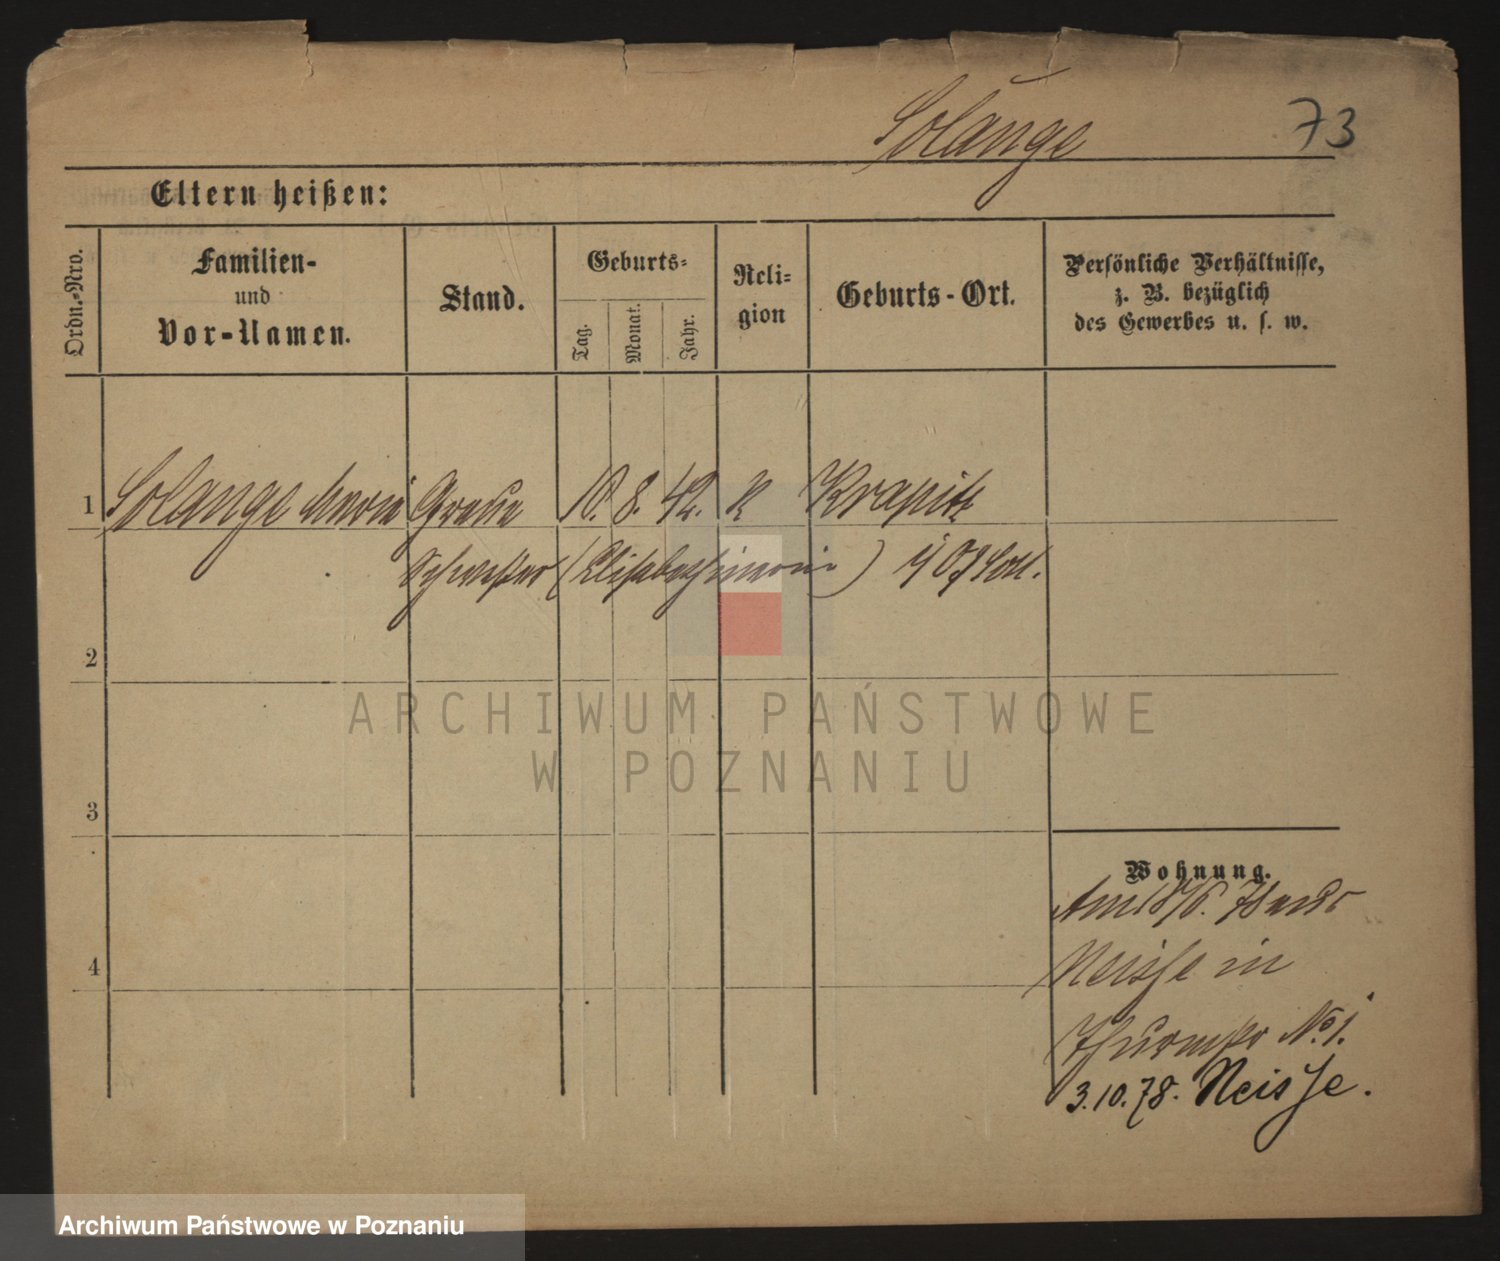 Solange 73
Eltern heißen:
Ordn.-Nro.
Familien-
und
Vor-Namen.
Stand.
Geburts-
Tag.
Monat.
Jahr.
Reli-
gion
Geburts-Ort.
Persönliche Verhältnisse,
z. B. bezüglich
des Gewerbes u. s. w.
1 Solange Marie Graue 10. 8. 42. K Krapitz
Schwester (Elisabethinerin)
2
3
4
Wohnung.
Am 18/6. 78 aus
Neisse in
Thurmstr No 1.
3.10.78. Neisse.
ARCHIWUM PAŃSTWOWE
W POZNANIU
Archiwum Państwowe w Poznaniu